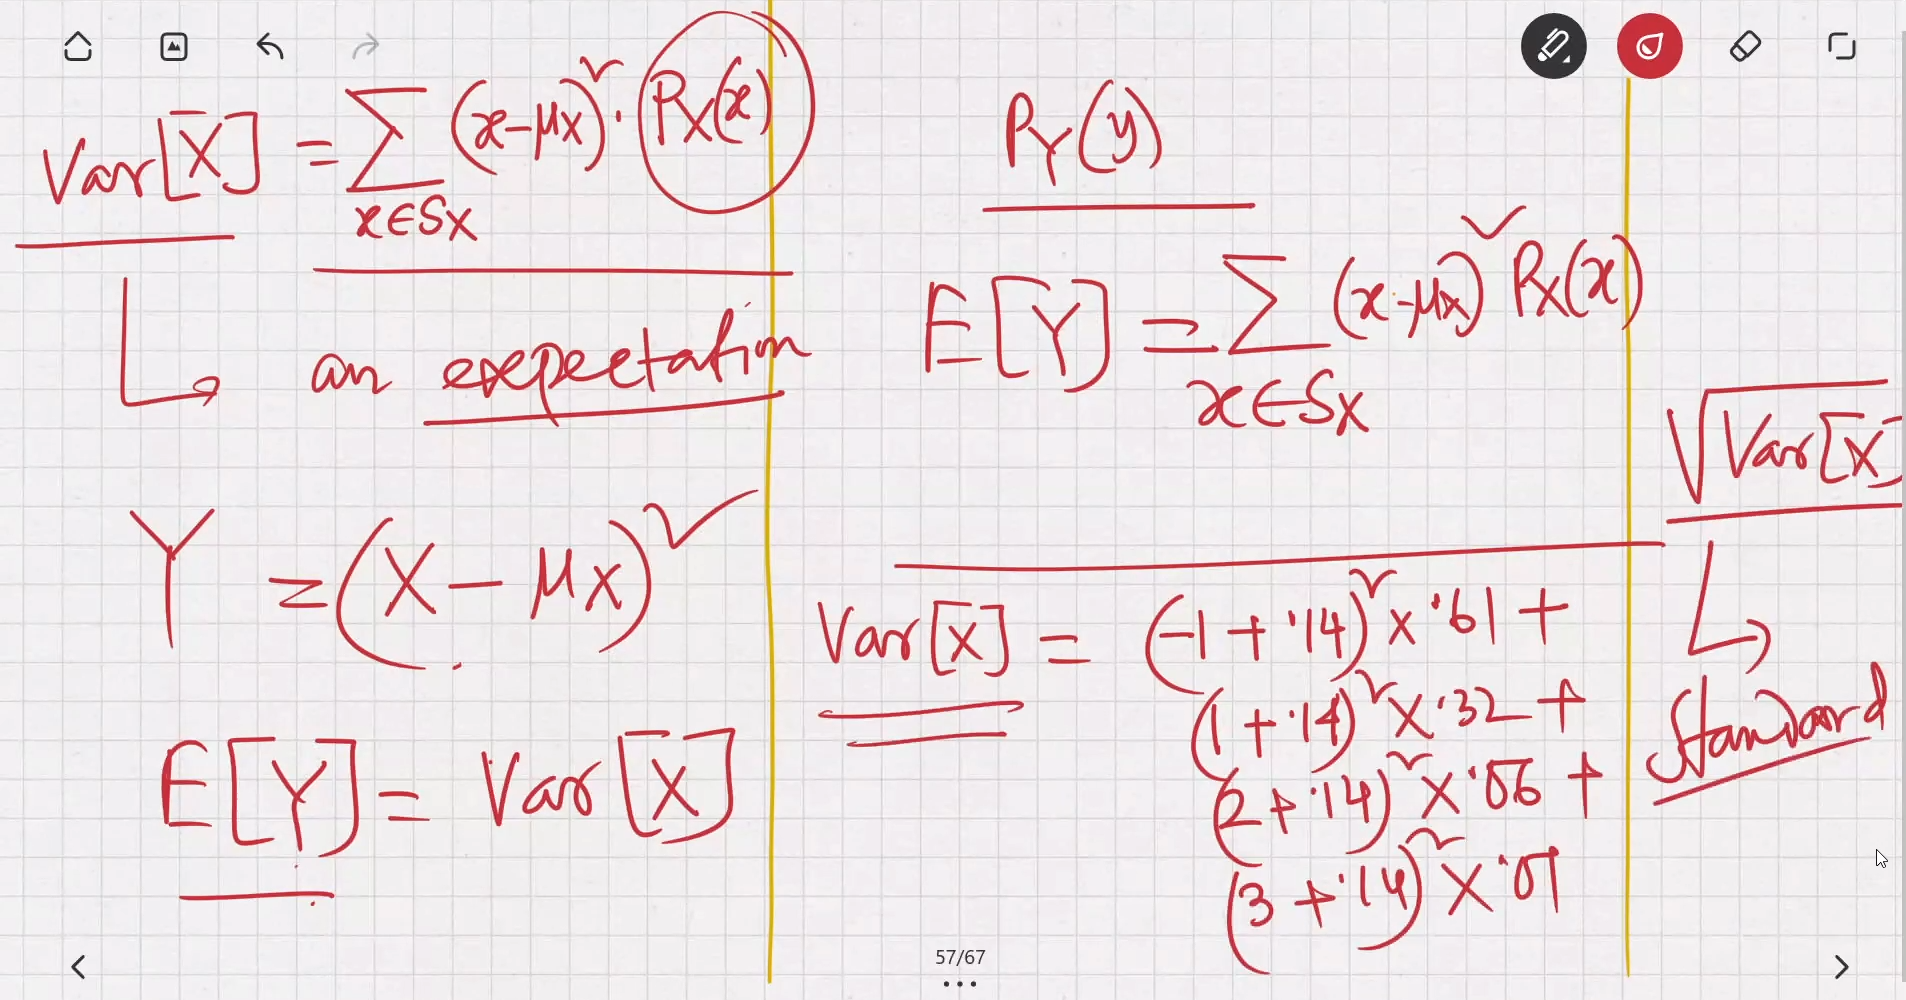 Var[X] = ∑ (x-μX)² . PX(x)
x∈SX
an expectation
Y = (X - μX)²
E[Y] = Var[X]
PY(y)
E[Y] = ∑ (x-μX)² PX(x)
x∈SX
Var[X] = (-1 + .14)² x .61 +
(1 + .14)² x .32 +
(2 + .14)² x .06 +
(3 + .14)² x .01
√Var[X]
Standard
57/67